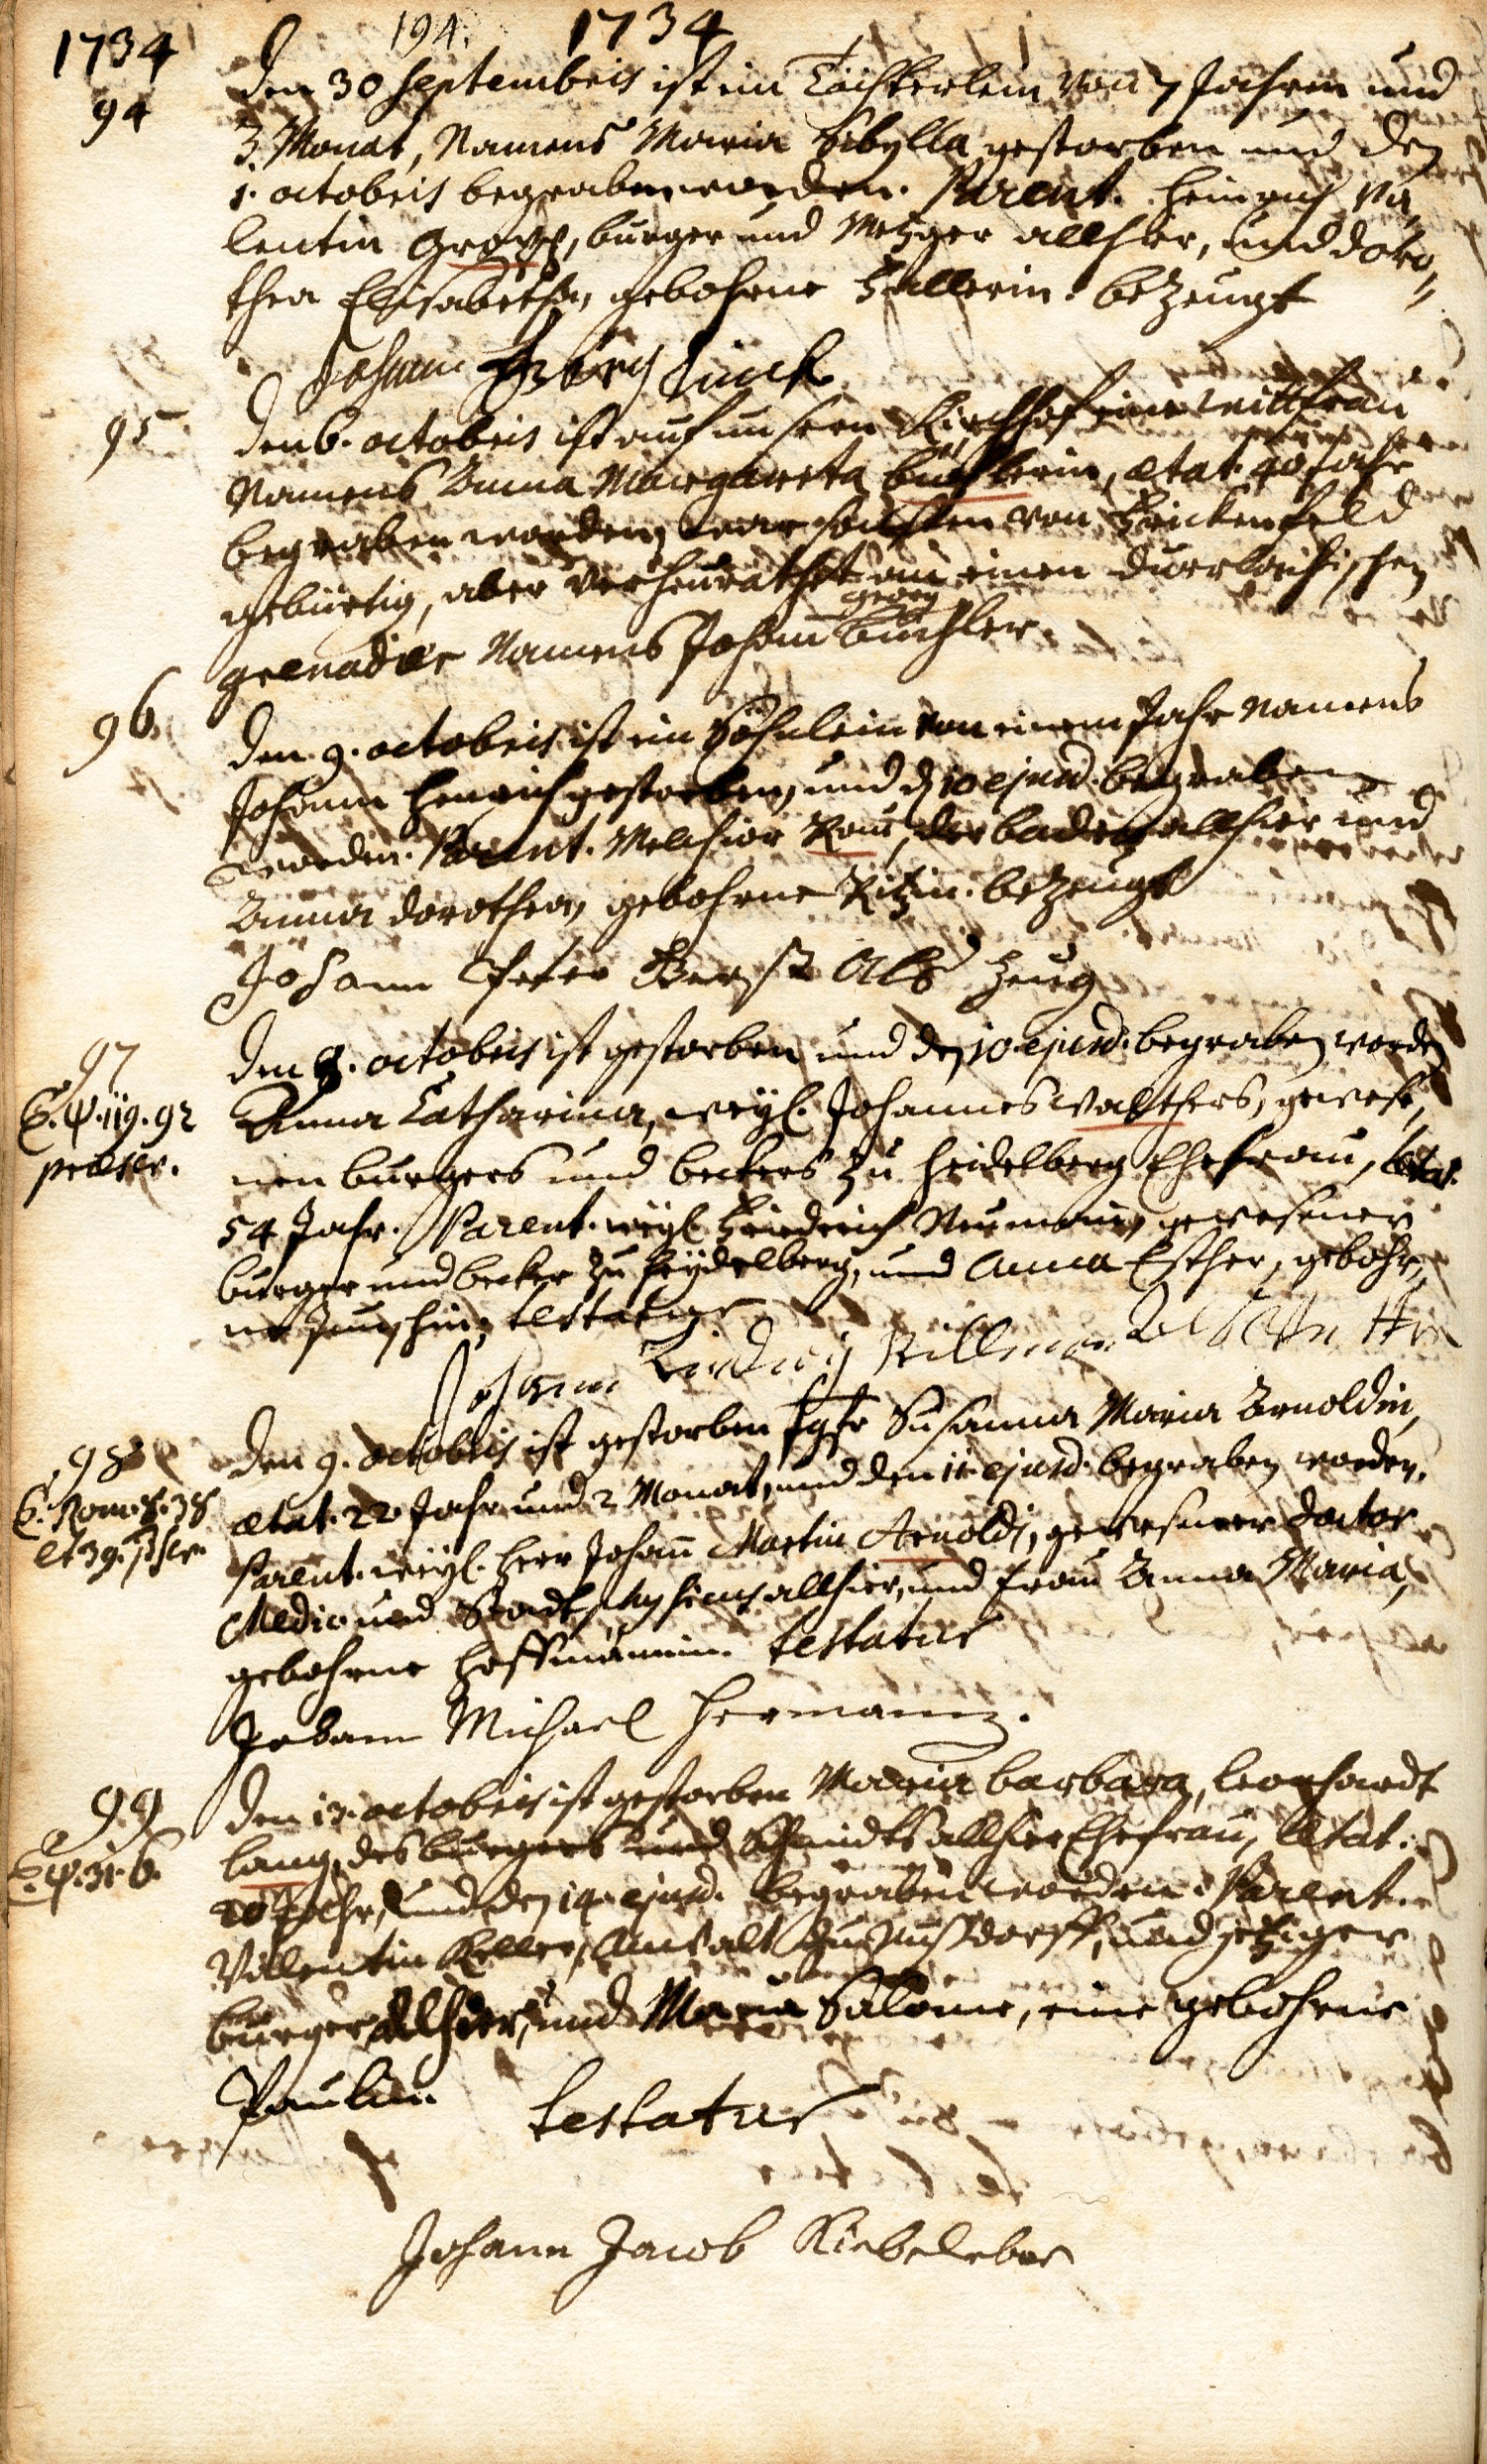 194. 1734
1734
94
den 30 Septembris ist ein Töchterlein von 7 Jahren und
3. Monat, Namens Maria Sibylla gestorben und den
1. octobris begraben worden. Parent. Heinrich Va,
lentin, burger und Metzger allhier, und doro,,
thea Elisabetha, gebohrne Hallerin. bezeugt
Johann Görg
95
den 6. octobris ist auf unsern Kirchhof eine
Namens Anna Margareta Büchlerin, ætat. 40 Jahr
begraben worden, war sonsten von Brickenfeld
gebürtig, aber verheurathet an einen durlachischen
georg
grenadier Namens Johann Büchler.
96.
den 9. octobris ist ein Söhnlein von einem Jahr Namens
Johann Henrich gestorben, und d 10 ejusd. begraben
worden. Parent. Melchior Rau, der bader allhier und
Anna dorothea, gebohrne Ritzin. bezeugt
Johann Peter Berst Als Zeug
97
E. ψ. 119. 92
præter.
den 8. octobris ist gestorben und den 10. ejusd. begraben worden
Anna Catharina, weyl. Johannes Walthers, gewese,
nen burgers und beckers zu Heidelberg Ehefrau, ætat.
54 Jahr. Parent. weyl. Friedrich Neumann, gewesener
burger und becker zu Heydelberg, und Anna Esther, gebohr,
ne testatur
Johann Ludwig
98
E. Rom. 8. 38
et 39.
den 9. octobris ist gestorben Jgfr Susanna Maria Arnoldin,
ætat. 22 Jahr und 2 Monat, und den 11. ejusd. begraben worden.
Parent. weyl. Herr Johann Martin Arnoldj, gewesener Doctor
Medic. und Stadt physicus allhier, und Frau Anna Maria,
gebohrne Hoffmännin. testatur
Johann Michael Hermann.
99
E. ψ. 31. 6.
den 13. octobris ist gestorben Maria barbara, Leonhardt
Lang, des burgers und Schmidts allhier Ehefrau, ætat.
Jahr, und den 14. ejusd. begraben worden. Parent.
Vallentin Keller, Anwalt zu Nußdorff, und jetziger
burger allhier, und Maria Salome, eine gebohrne
Paulin. testatur
Johann Jacob